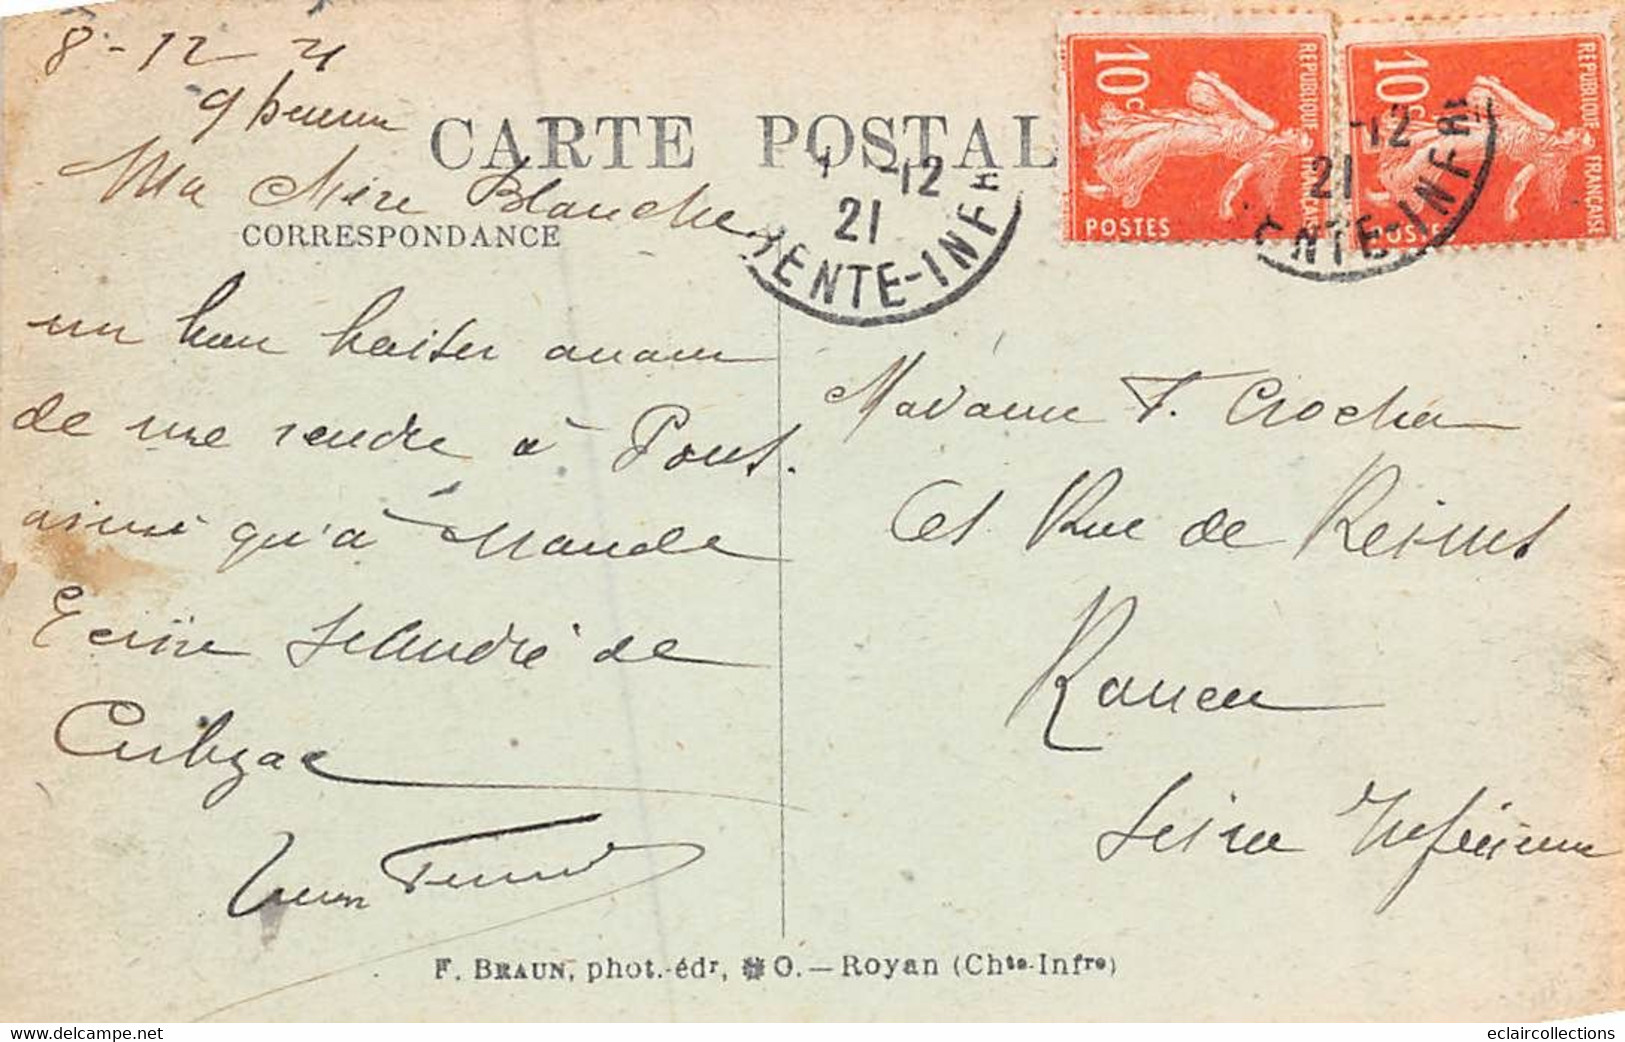 8-12 21
9 heures
CARTE POSTAL
Ma chère Blanche
CORRESPONDANCE
un bon baiser avant
de me rendre à Pons.
ainsi qu'à Maude
Ecrire St André de
Cubzac
10c
REPUBLIQUE FRANÇAISE
POSTES
10c
REPUBLIQUE FRANÇAISE
POSTES
-12
21
ENTE-INFR
-12
21
ENTE-INFR
Madame F. Crocha
61 Rue de Reims
Rouen
Seine Inférieure
F. BRAUN, phot.-édr, O. — Royan (Chte-Infre)
www.delcampe.net
eclaircollections